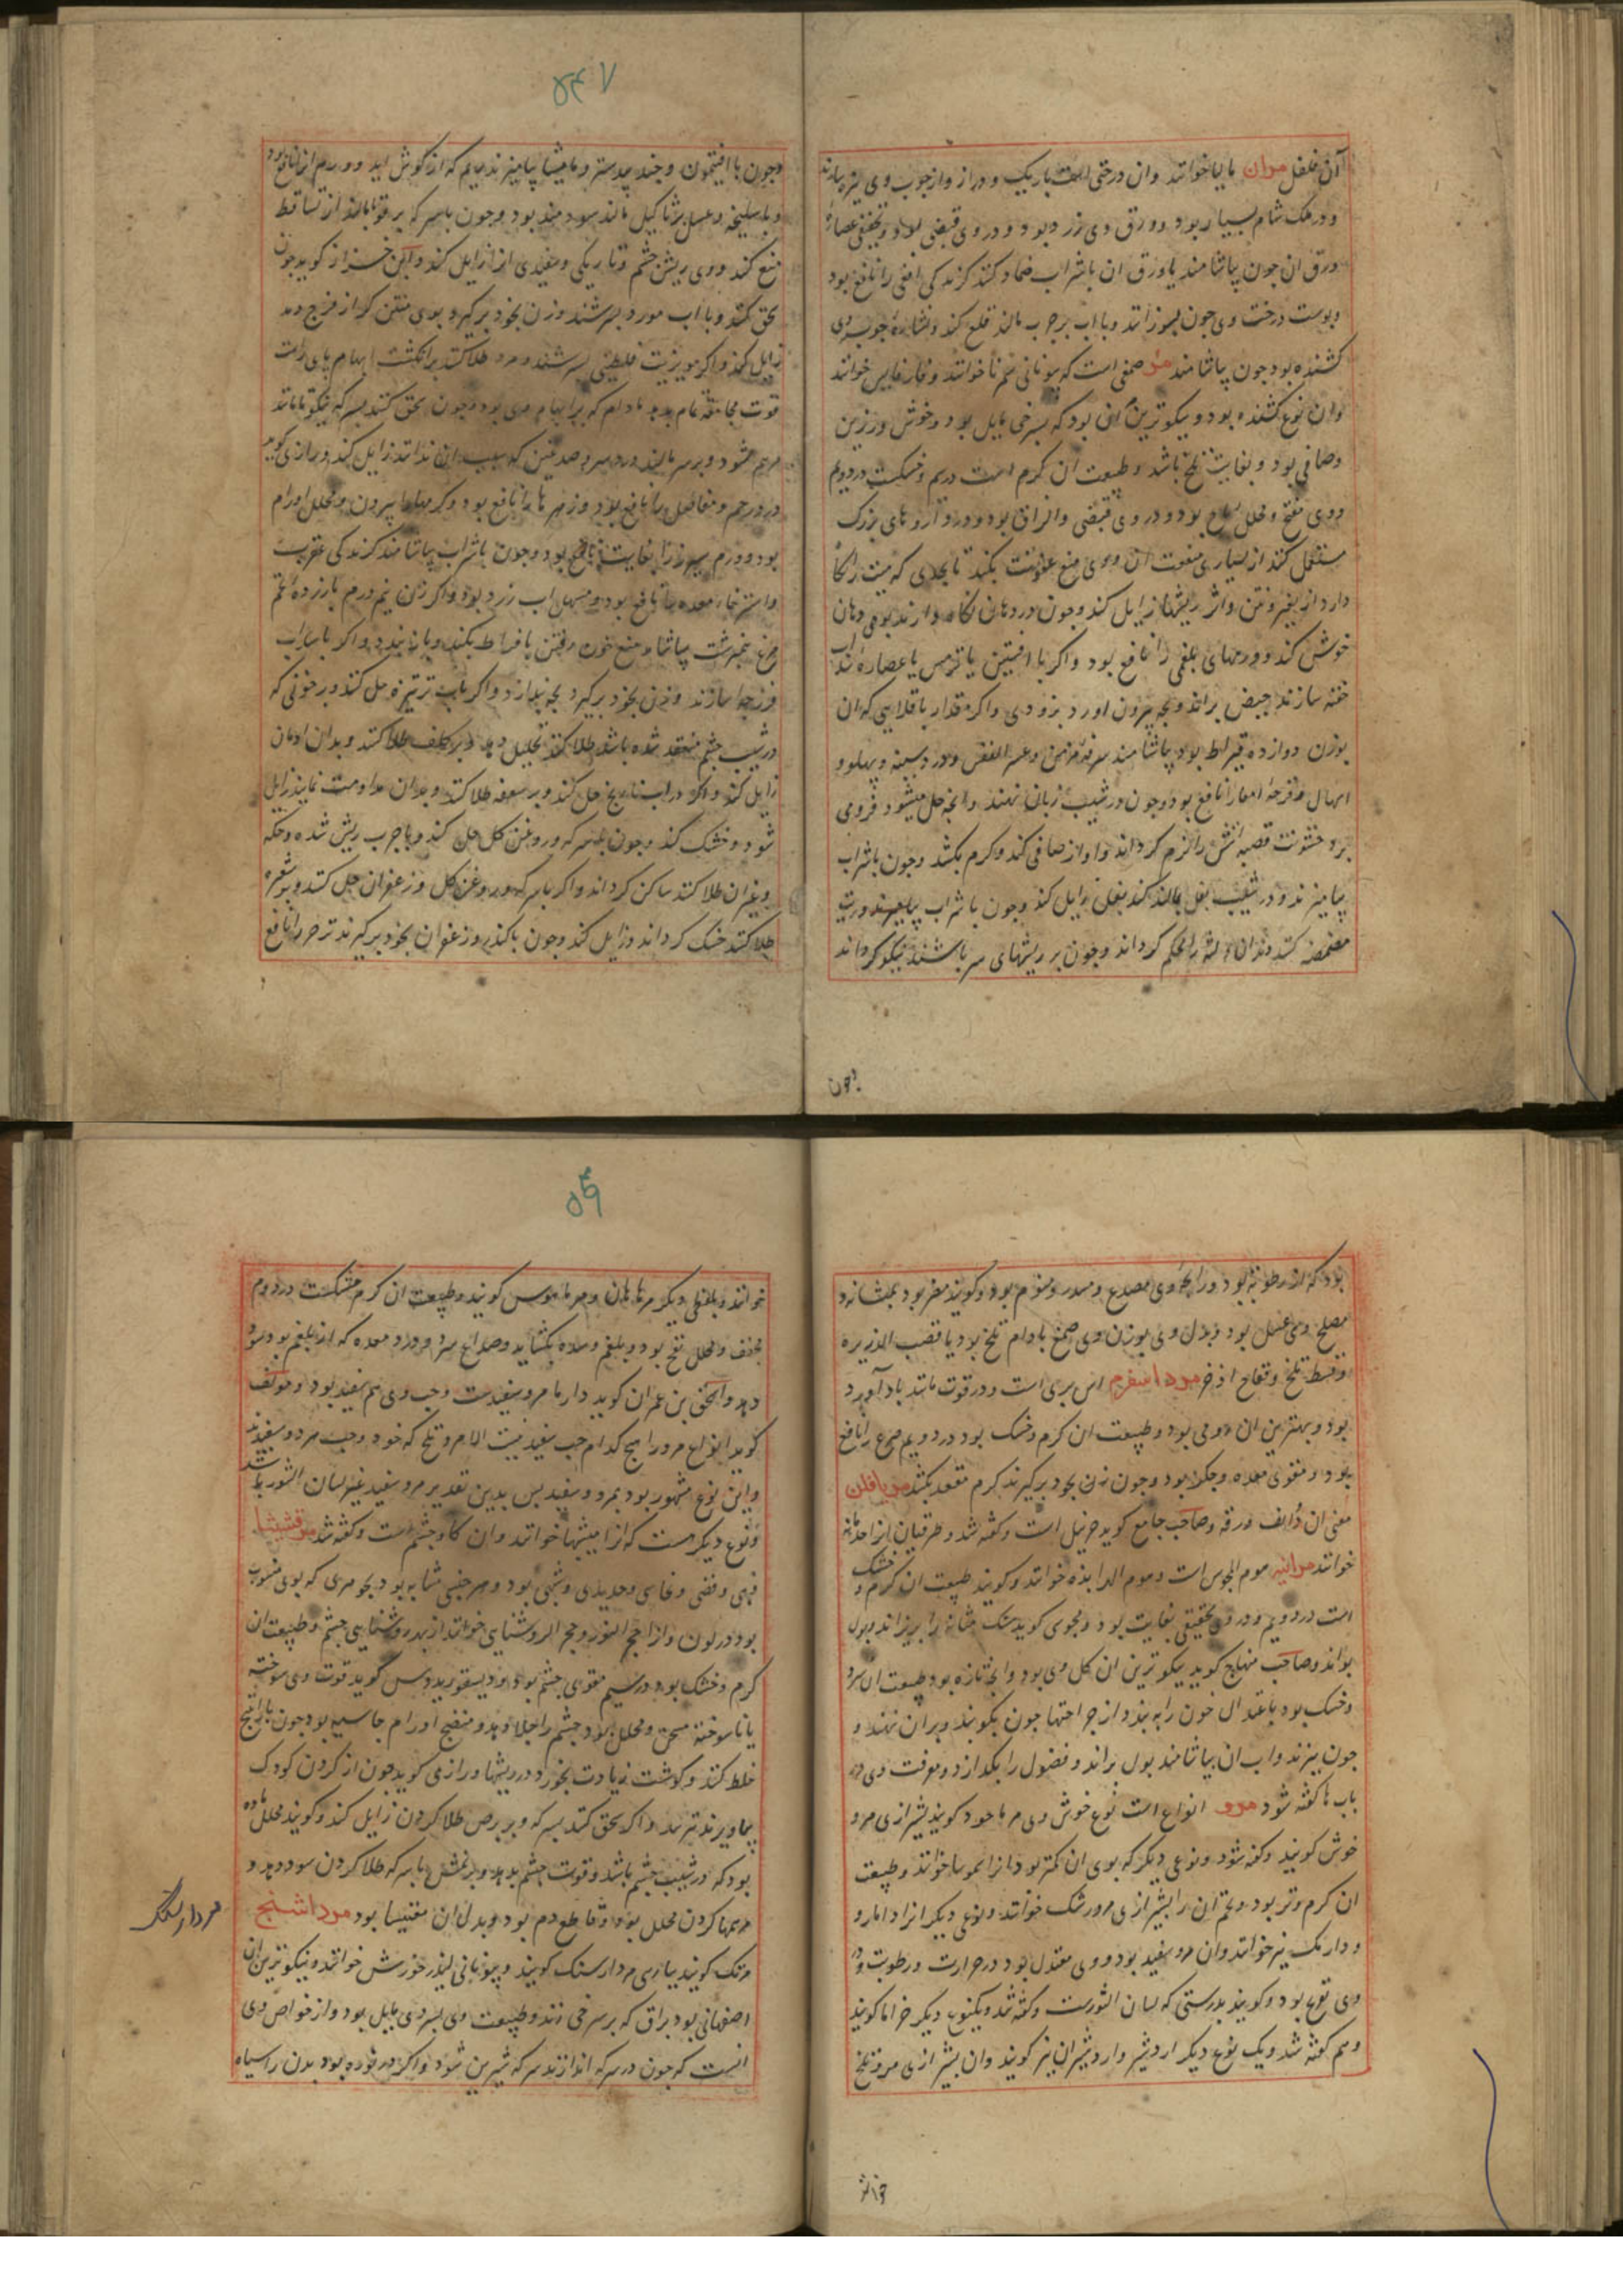 ۵۴۷
آن فلفل مران مایا خوانند وان درختی است باریک و دراز واز چوب وی نیزه سازند
ودر ملک شام بسیار بود وورق وی زرد بود و در وی قبضی بود وتجفیفی عصارهٔ
ورق ان چون بیاشامند یا ورق ان باشراب ضماد کنند کزندکی افعی را نافع بود
وپوست درخت وی چون بسوزانند وبا اب بر جرب مالند قلع کند ونشارهٔ چوب وی
کشنده بود چون بیاشامند مر صمغی است که بیونانی سمرنا خوانند و
وان نوع کشنده بود ونیکوترین ان بود که بسرخی مایل بود وخوش ورزین
وصافی بود وبغایت تلخ باشد وطبیعت ان کرم است در سیم وخشکست در دویم
ووی مفتح ومحلل ریاح بود ودر وی قبضی والزاق بود ودر داروهای بزرک
مستعمل کنند از بسیاری منفعت ان ووی منع عفونت بکند تا بحدی که میت را نکاه
دارد از تغیر ونتن واثر ریشها زایل کند وچون در دهان نکاه دارند بوی دهان
خوش کند وورمهای بلغمی را نافع بود واکر با افسنتین یا ترمس یا عصارهٔ سداب
حقنه سازند حیض براند وبچه بیرون اورد بزودی واکر مقدار باقلایی که ان
بوزن دوازده قیراط بود بیاشامند سرفهٔ مزمن وعسر النفس ودرد سینه وپهلو و
اسهال وقرحهٔ امعا را نافع بود وچون در شیب زبان نهند وانچه حل میشود فرومی
برد خشونت قصبه شش را نرم کرداند واواز صافی کند وکرم بکشد وچون باشراب
بیامیزند ودر شیب بغل بمالند کند بغل زایل کند وچون باشراب بیامیزند وزیت
مضمضه کنند دندان ولثه را محکم کرداند وچون بر ریشهای سر باشند نیکو کرداند
چون
وچون با افیون وجند بیدستر ومامیثا بیامیزند ریم که از کوش اید وورم انرا نافع بود
وبا سلیخه وعسل برثالیل مالند سودمند بود وچون باسرکه بر قوبا مالند از تساقط
منع کند ووی ریش چشم وتاریکی وسفیدی انرا زایل کند وابن جزار کوید چون
سحق کنند وبا اب مورد بسرشند وزن بخود برکیرد بوی منتن که از فرج دمد
زایل کند واکر مر بزیت فلسطینی بسرشند ومرد طلا کند بر انکشت ابهام پای راست
قوت مجامعه تمام بدهد مادام که بر ابهام وی بود وچون سحق کنند بسرکه نیکو تا مانند
مرهم شود وبر سر مالند درد سر وصدغین که سبب ان ندانند زایل کند ورازی کوید
درد رحم ومفاصل را نافع بود وزهرها را نافع بود وکرمها را بیرون ومحلل اورام
بود وورم سپرز را بغایت نافع بود وچون باشراب بیاشامند کزندکی عقرب
واسترخاء معده را نافع بود ومسهل اب زرد بود واکر زن نیم درم بازردهٔ تخم
مرغ نیمبرشت بیاشامد منع خون رفتن بافراط بکند واکر
فرزجه سازند وزن بخود برکیرد بچه بیندازد واکر باب ترتیزه حل کنند وبر خونی که
در شیب چشم منعقد شده باشد طلا کنند تحلیل دهد وبر کلف طلا کنند وبدان ادمان
زایل کند واکر در اب نارنج حل کنند وبر سعفه طلا کنند وبدان مداومت نمایند زایل
شود وخشک کند وچون بسرکه وروغن کل حل کنند وبا جرب ریش شده وحکه
وغیر ان طلا کنند ساکن کرداند واکر باسرکه وروغن کل وزعفران حل کنند وبر سعفه
طلا کنند خشک کرداند وزایل کند وچون با کندر وزعفران بخود برکیرند زحیر را نافع
۵۴۹
بود که از رطوبة بود ورایحهٔ وی مصدع ومسدر ومنوم بود وکویند مضر بود بمثانه و
مصلح وی عسل بود وبدل وی بوزن وی صمغ بادام تلخ بود یا قصب الذریره
وقسط تلخ وفقاح اذخر مرد اسفرم اس بری است ودر قوت مانند بادآورد
بود وبهترین ان رومی بود وطبیعت ان کرم وخشک بود در دویم صرع را نافع
بود ومقوی معده وجکر بود وچون زن بخود برکیرند کرم مقعد بکشد مریافلن
معنی ان ذالف ورقه وصاحب جامع کوید حزنبل است وکفته شد وطرقیان
خوانند مرانیه موم المجوس است وموم الدابذه خوانند وکویند طبیعت ان کرم و خشک
است در دویم ودر وی تجفیفی بغایت بود ومجوسی کوید سنک مثانه را بریزاند وبول
براند وصاحب منهاج کوید نیکوترین ان کل وی بود وانچه تازه بود طبیعت ان سرد
وخشک بود باعتدال خون را ببندد از جراحتها چون بکوبند وبران نهند و
چون بپزند واب ان بیاشامند بول براند وفضول را بکدازد ومنفعت وی در
باب ها کفته شود مرو انواع است نوع خوش وی مرماحوز کویند بشیرازی مرو
خوش کویند وکفته شود ونوعی دیکر که بوی ان کمتر بود انرا خوانند وطبیعت
ان کرم وتر بود وتخم ان را بشیرازی مرورشک خوانند ونوعی دیکر انرا دارمارو
ودارمک نیز خوانند وان مرو سفید بود ووی معتدل بود در حرارت ورطوبت ودر
وی تفریح بود وکویند بدرستی که لسان الثورست وکفته شد ویکنوع دیکر خزاما کویند
وهم کفته شد ویک نوع دیکر اردشیر واردشیران نیز کویند وان بشیرازی مرو تلخ
خوانند
خوانند وبلفظی دیکر مرماهان ومرماهوس کویند وطبیعت ان کرم وخشکست در دوم
مجفف ومحلل نفخ بود وبلغم وسده بکشاید وصداع سرد ودرد معده که از بلغم بود سود
دهد واسحق بن عمران کوید دارما مرو سفیدست وحب وی هم سفید بود ومولف
کوید انواع مرو را هیچ کدام حب سفید نیست الا مرو تلخ که خود وحب هردو سفیدند
واین نوع مشهور بود بمرو سفید پس بدین تقدیر مرو سفید غیر لسان الثور باشد
ونوع دیکر هست که انرا میشبها خوانند وان کاوچشم است وکفته شد مرقشیشا
ذهبی وفضی ونحاسی وحدیدی وشبهی بود وهر جنسی مشابه بود بجوهری که بوی منسوب
بود در لون وانرا حجر النور وحجر الروشنایی خوانند از بهر روشنایی چشم وطبیعت ان
کرم وخشک بود در سیم مقوی چشم بود ودیسقوریدوس کوید قوت وی سوخته
یا ناسوخته مسخن ومحلل بود وچشم را جلا دهد ومنضج اورام جاسیه بود چون باراتینج
خلط کنند وکوشت زیادت بخورد در ریشها ورازی کوید چون از کردن کودک
بیاویزند نترسد واکر سحق کنند بسرکه وبر برص طلا کردن زایل کند وکویند محلل ماده
بود که در شیب چشم باشد وقوت چشم بدهد وبر نمش باسرکه طلا کردن سود دهد و
مرهمها کردن محلل بود وقاطع دم بود وبدل ان مغنیسا بود مرداسنج
مرتک کویند بپارسی مردارسنک کویند وبیونانی لیذرخورش خوانند ونیکوترین ان
اصفهانی بود براق که بسرخی زند وطبیعت وی بسردی مایل بود واز خواص وی
انست که چون در سرکه اندازند سرکه شیرین شود واکر در نوره بود بدن را سیاه
مردارسنگ